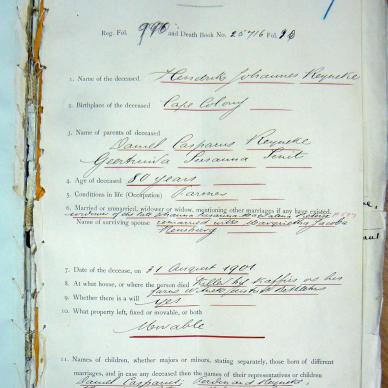 Reg. Fol. 990 and Death Book No. 25716 Fol. 96
1. Name of the deceased Hendrik Johannes Reyneke
2. Birthplace of the deceased Cape Colony
3. Name of parents of deceased
Daniel Casparus Reyneke
Geertruida Susanna Smit
4. Age of deceased 80 years
5. Conditions in life (Occupation) Farmer
6. Married or unmarried, widower or widow, mentioning other marriages if any have existed.
widower of the late Johanna Susanna
Name of surviving spouse remarried with Margrietha Jacoba
Rensburg
7. Date of the decease, on 31 August 1901
8. At what house, or where the person died Killed by Kaffirs on his
farm district Bethlehem
9. Whether there is a will yes
10. What property left, fixed or movable, or both
Movable
11. Names of children, whether majors or minors, stating separately, those born of different
marriages, and in case any deceased then the names of their representatives or children
Daniel Casparus, Ferdinand Reyneke,